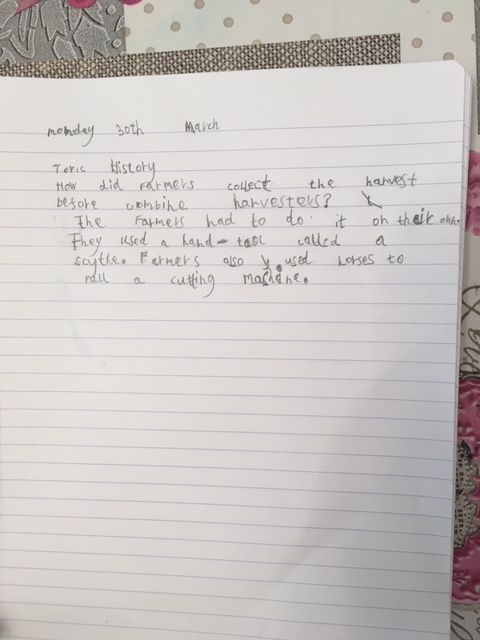 monday 30th March
Topic History
How did Farmers collect the harvest
before combine harvesters?
The Farmers had to do it on their own.
They used a hand-tool called a
scythe. Farmers also used horses to
pull a cutting mashine.